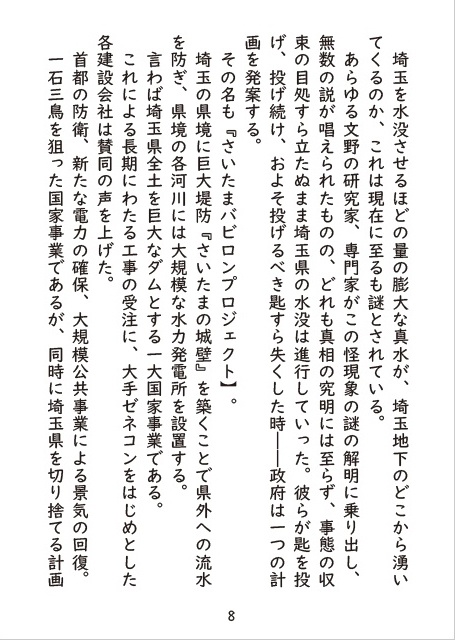 埼玉を水没させるほどの量の膨大な真水が、埼玉地下のどこから湧い
てくるのか、これは現在に至るも謎とされている。
　あらゆる文野の研究家、専門家がこの怪現象の謎の解明に乗り出し、
無数の説が唱えられたものの、どれも真相の究明には至らず、事態の収
束の目処すら立たぬまま埼玉県の水没は進行していった。彼らが匙を投
げ、投げ続け、およそ投げるべき匙すら失くした時――政府は一つの計
画を発案する。
　その名も『さいたまバビロンプロジェクト】。
　埼玉の県境に巨大堤防『さいたまの城壁』を築くことで県外への流水
を防ぎ、県境の各河川には大規模な水力発電所を設置する。
　言わば埼玉県全土を巨大なダムとする一大国家事業である。
　これによる長期にわたる工事の受注に、大手ゼネコンをはじめとした
各建設会社は賛同の声を上げた。
　首都の防衛、新たな電力の確保、大規模公共事業による景気の回復。
　一石三鳥を狙った国家事業であるが、同時に埼玉県を切り捨てる計画
8